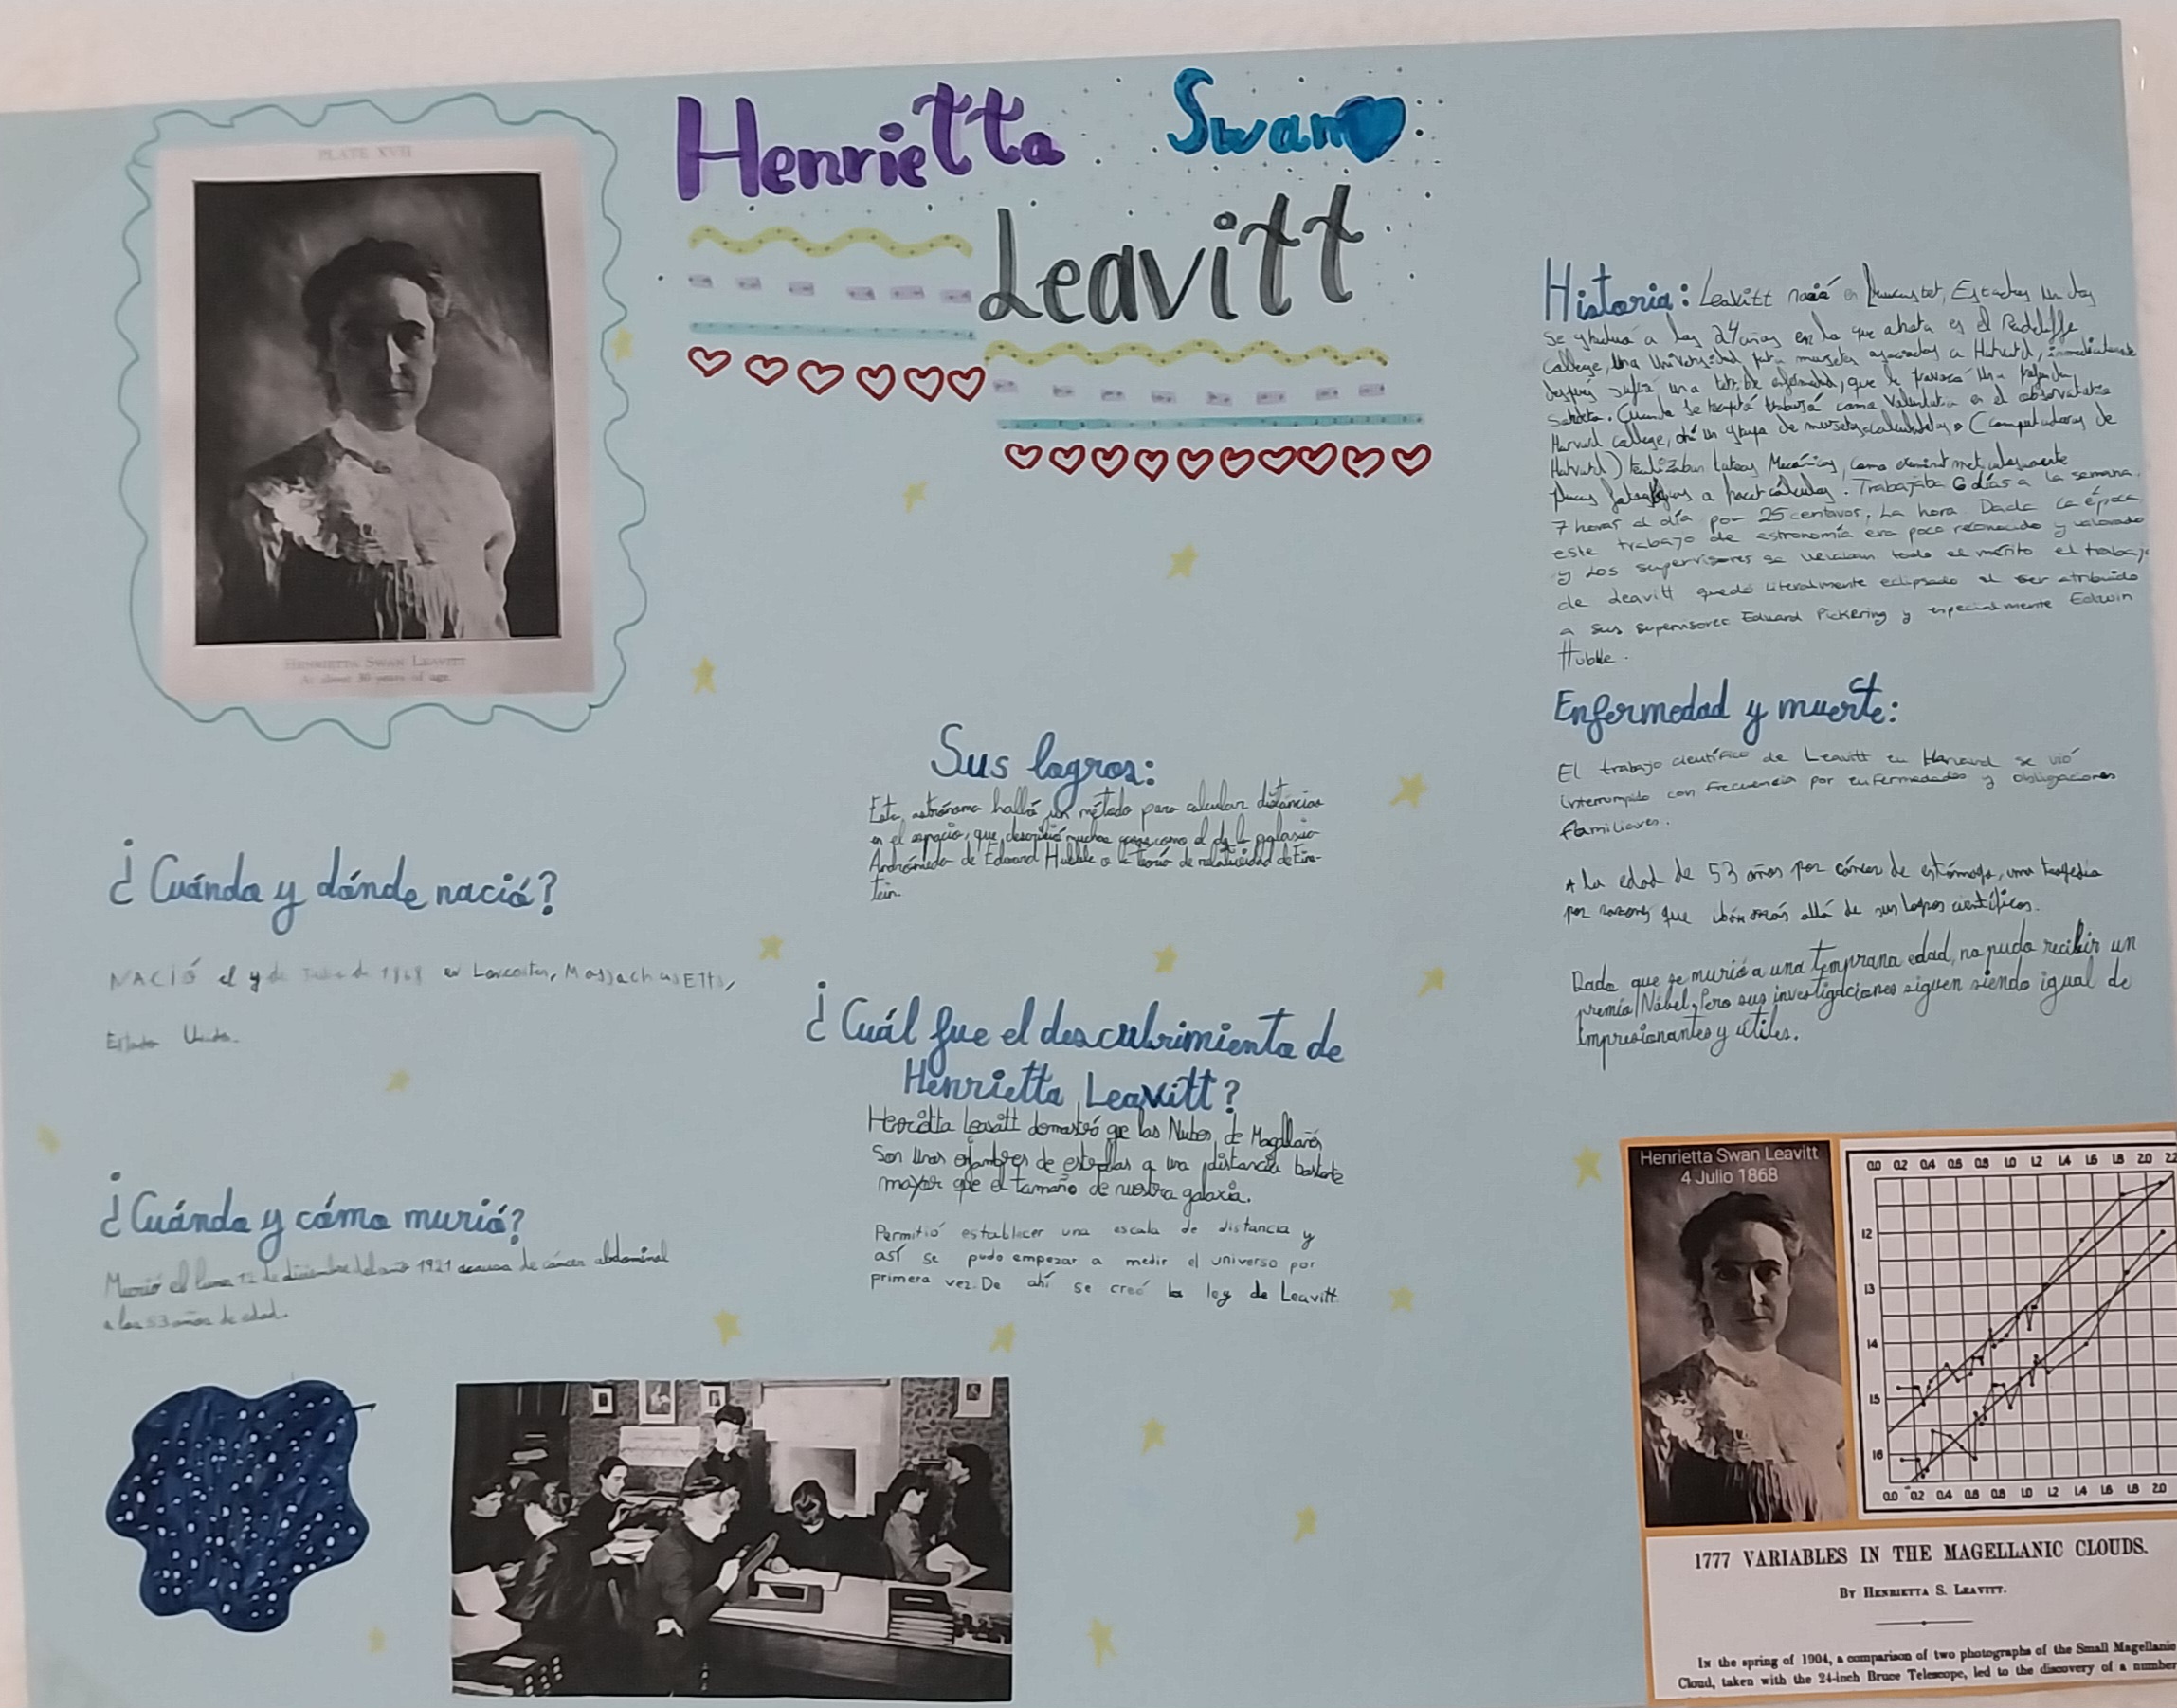 PLATE XVII
HENRIETTA SWAN LEAVITT
At about 30 years of age
Henrietta Swan
Leavitt
¿Cuándo y dónde nació?
NACIÓ el 4 de Julio de 1868 en Lancaster, Massachusetts,
Estados Unidos.
¿Cuándo y cómo murió?
Murió el lunes 12 de diciembre del año 1921 a causa de cáncer abdominal
a los 53 años de edad.
Sus logros:
Esta astrónoma halló un método para calcular distáncias
en el espacio, que describió muchas cosas como el de la galaxia
Andrómeda de Edward Hubble o la teoría de relatividad de Eins-
tein.
¿Cuál fue el descubrimiento de
Henrietta Leavitt?
Henrietta Leavitt demostró que las Nubes de Magallanes
Son unas enjambres de estrellas a una distancia bastante
mayor que el tamaño de nuestra galaxia.
Permitió establecer una escala de distancia y
así se pudo empezar a medir el universo por
primera vez. De ahí se creó la ley de Leavitt.
Historia: Leavitt nació en Estados Unidos
Se graduó a los 24 años en lo que ahora es el Radcliffe
College, una Universidad para mujeres asociados a Harvard, inmediatamente
después sufrió una terrible enfermedad, que le provocó una profunda
Sordera. Cuando se recuperó trabajó como Voluntaria en el observatorio
Harvard College, ahí un grupo de mujeres calculadoras (computadoras de
Harvard) realizaban tareas Mecánicas, como examinar meticulosamente
placas fotográficas o hacer cálculos. Trabajaba 6 días a la semana.
7 horas al día por 25 centavos. La hora. Dada la época
este trabajo de astronomía era poco reconocido y valorado
y Los supervisores se llevaban todo el mérito el trabajo
de Leavitt quedó literalmente eclipsado al ser atribuido
a sus supervisores Edward Pickering y especialmente Edwin
Hubble.
Enfermedad y muerte:
El trabajo científico de Leavitt en Harvard se vió
interrumpido con frecuencia por enfermedades y obligaciones
familiares.
A la edad de 53 años por cáncer de estómago, una tragedia
por razones que iban más allá de sus logros científicos.
Dado que se murió a una temprana edad, no pudo recibir un
premio Nóbel, Pero sus investigaciones siguen siendo igual de
Impresionantes y útiles.
Henrietta Swan Leavitt
4 Julio 1868
0.0 0.2 0.4 0.6 0.8 1.0 1.2 1.4 1.6 1.8 2.0 2.2
12
13
14
15
16
0.0 0.2 0.4 0.6 0.8 1.0 1.2 1.4 1.6 1.8 2.0
1777 VARIABLES IN THE MAGELLANIC CLOUDS.
BY HENRIETTA S. LEAVITT.
IN the spring of 1904, a comparison of two photographs of the Small Magellanic
Cloud, taken with the 24-inch Bruce Telescope, led to the discovery of a number